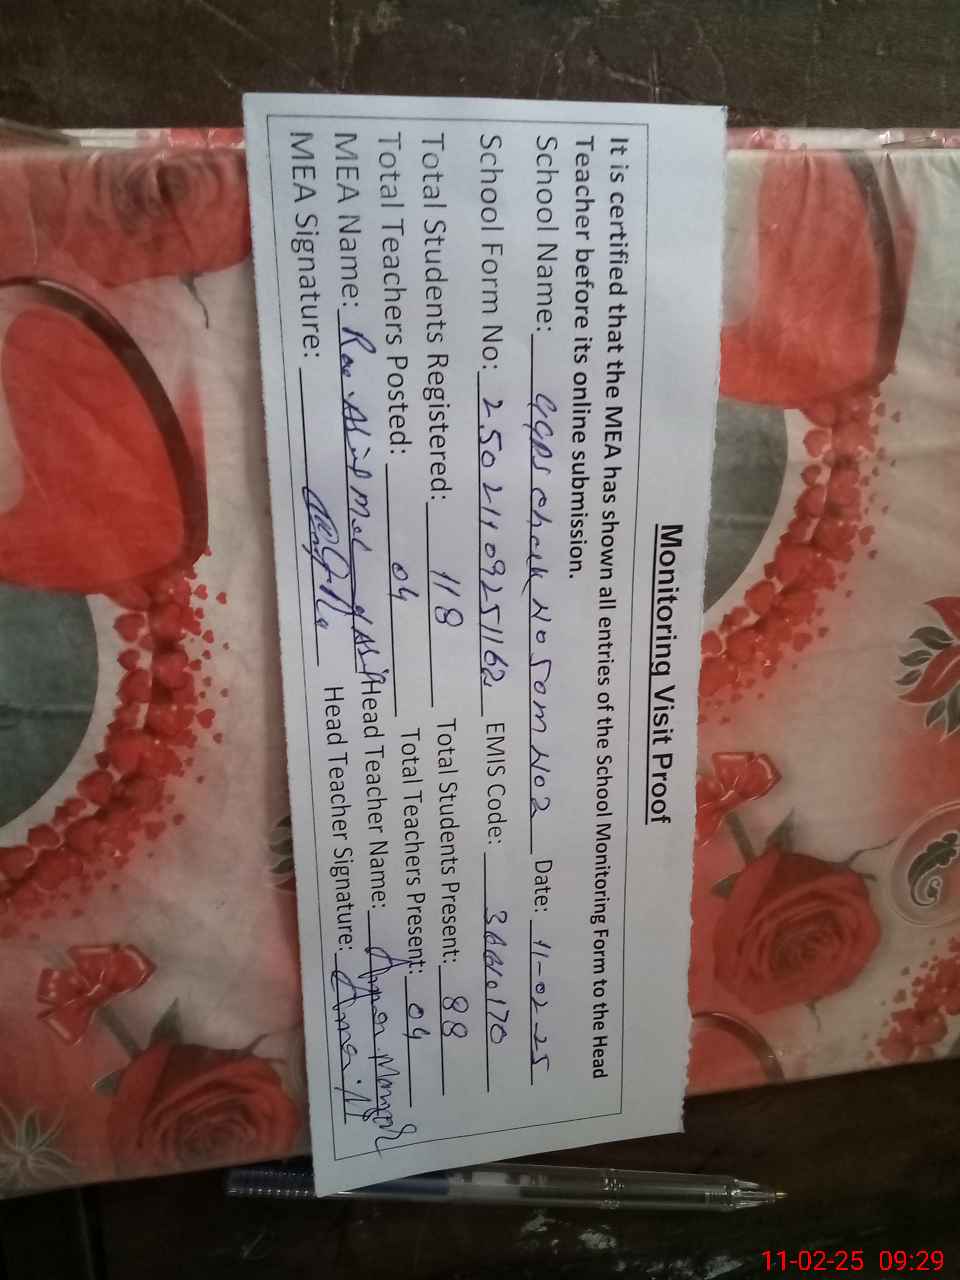 Monitoring Visit Proof
It is certified that the MEA has shown all entries of the School Monitoring Form to the Head
Teacher before its online submission.
School Name: GGPS Chak No 50 M No 2 Date: 11-02-25
School Form No: 25021109251162 EMIS Code:
Total Students Registered: 118 Total Students Present: 88
Total Teachers Posted: 04 Total Teachers Present: 04
MEA Name: Rao Head Teacher Name:
MEA Signature: Head Teacher Signature:
11-02-25 09:29